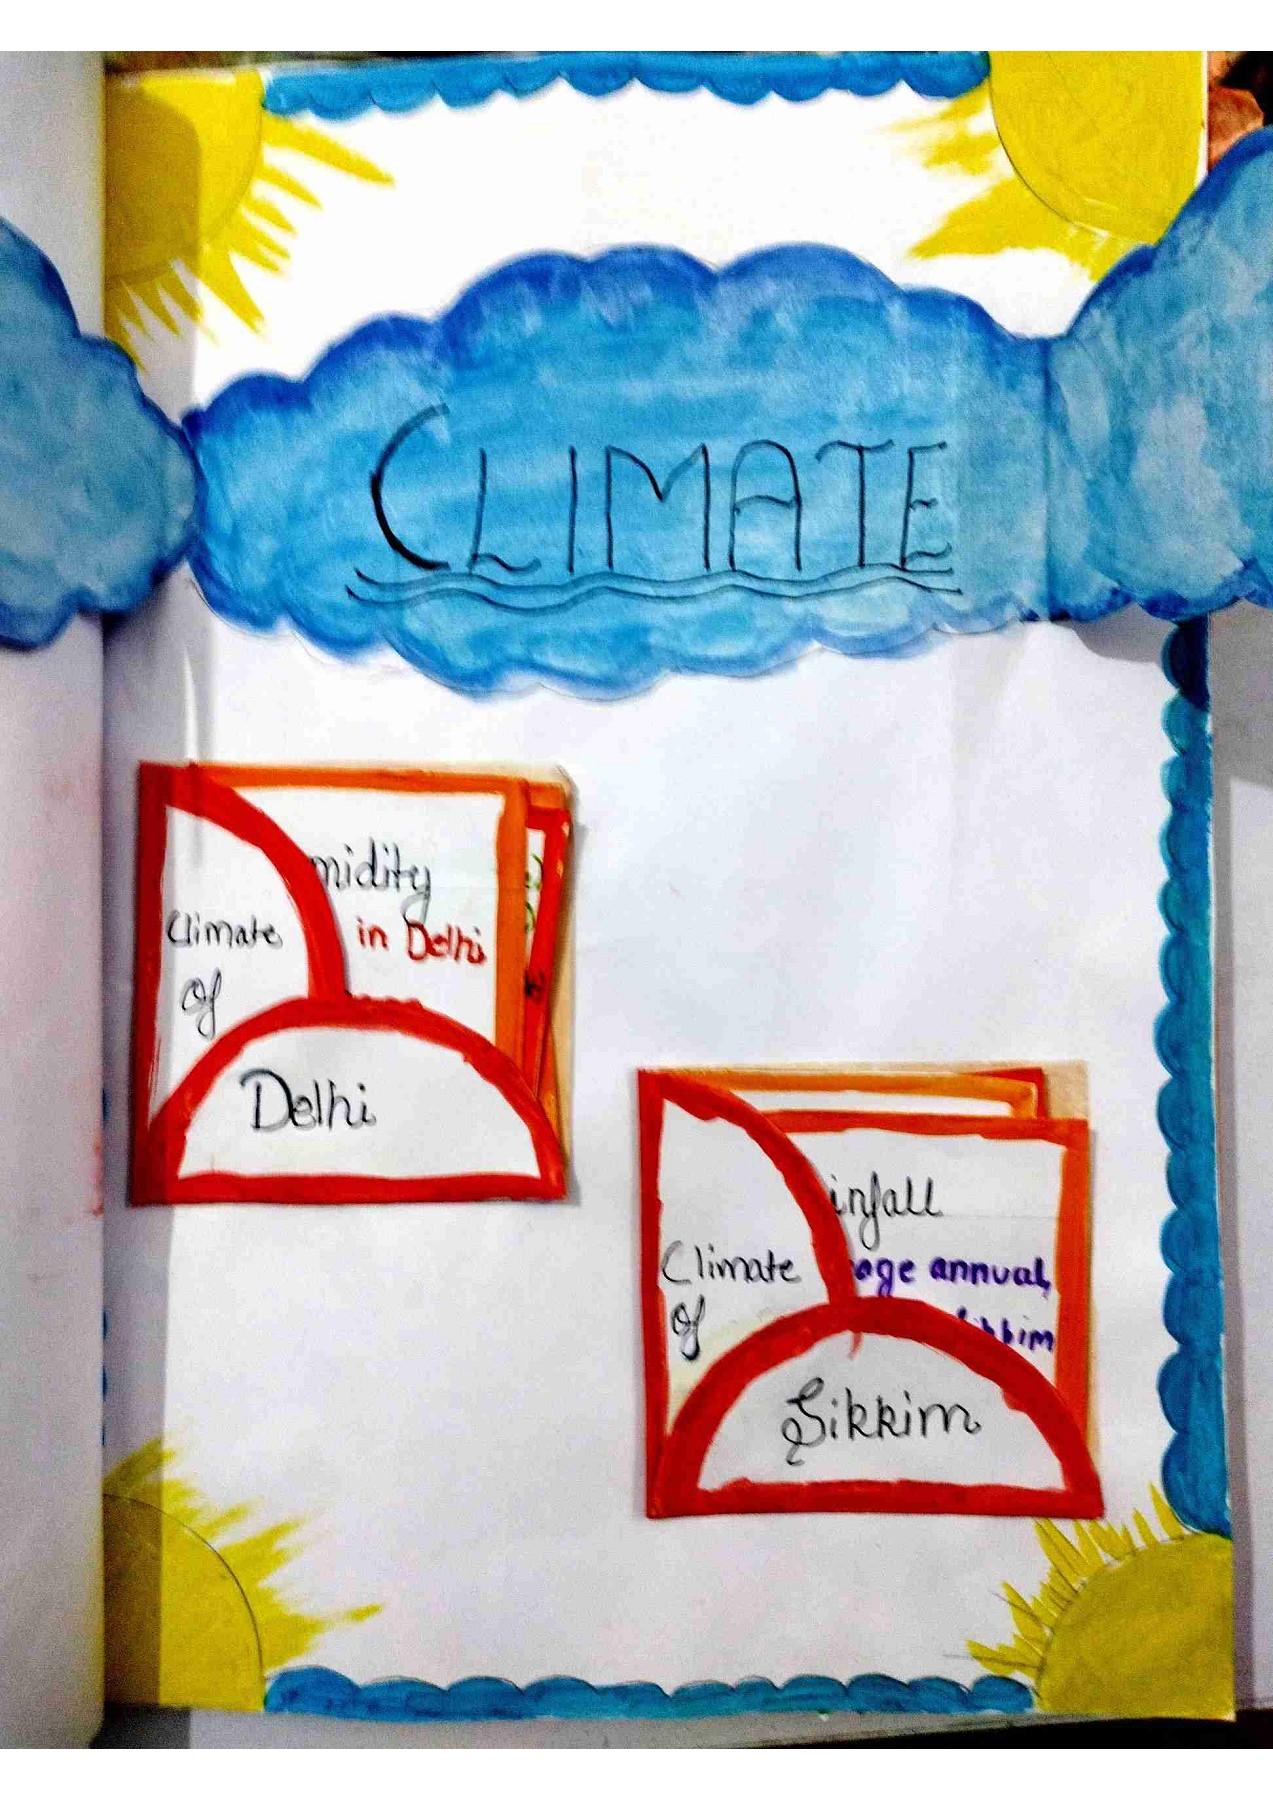 CLIMATE
midity
in Delhi
Climate
of
Delhi
infall
age annual,
Climate
of
Sikkim